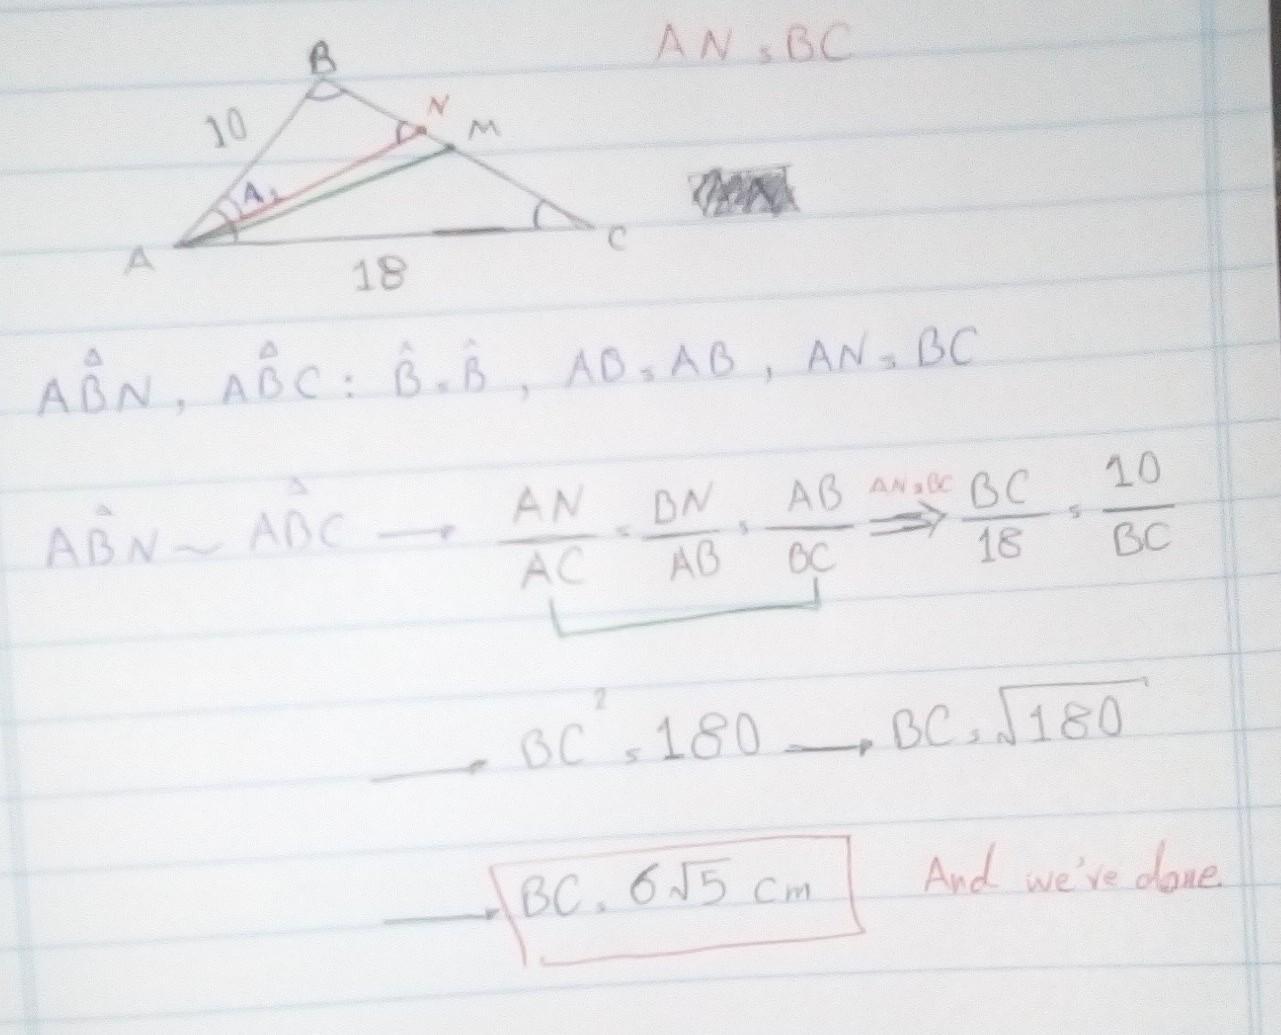 AN = BC
B
10
N
M
A₁
A
C
18
AB̂N, AB̂C : B̂ = B̂, AB = AB, AN = BC
AB̂N ~ AB̂C → AN/AC = BN/AB = AB/BC ⇒ AN=BC BC/18 = 10/BC
→ BC² = 180 → BC = √180
→ BC = 6√5 cm And we've done